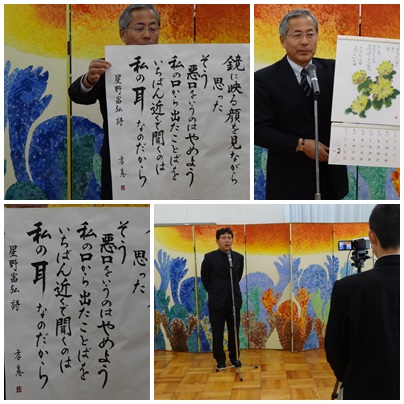 鏡に映る顔を見ながら
思った
もう
悪口をいうのはやめよう
私の口から出たことばを
いちばん近くで聞くのは
私の耳なのだから
星野富弘 詩
思った
もう
悪口をいうのはやめよう
私の口から出たことばを
いちばん近くで聞くのは
私の耳なのだから
星野富弘 詩